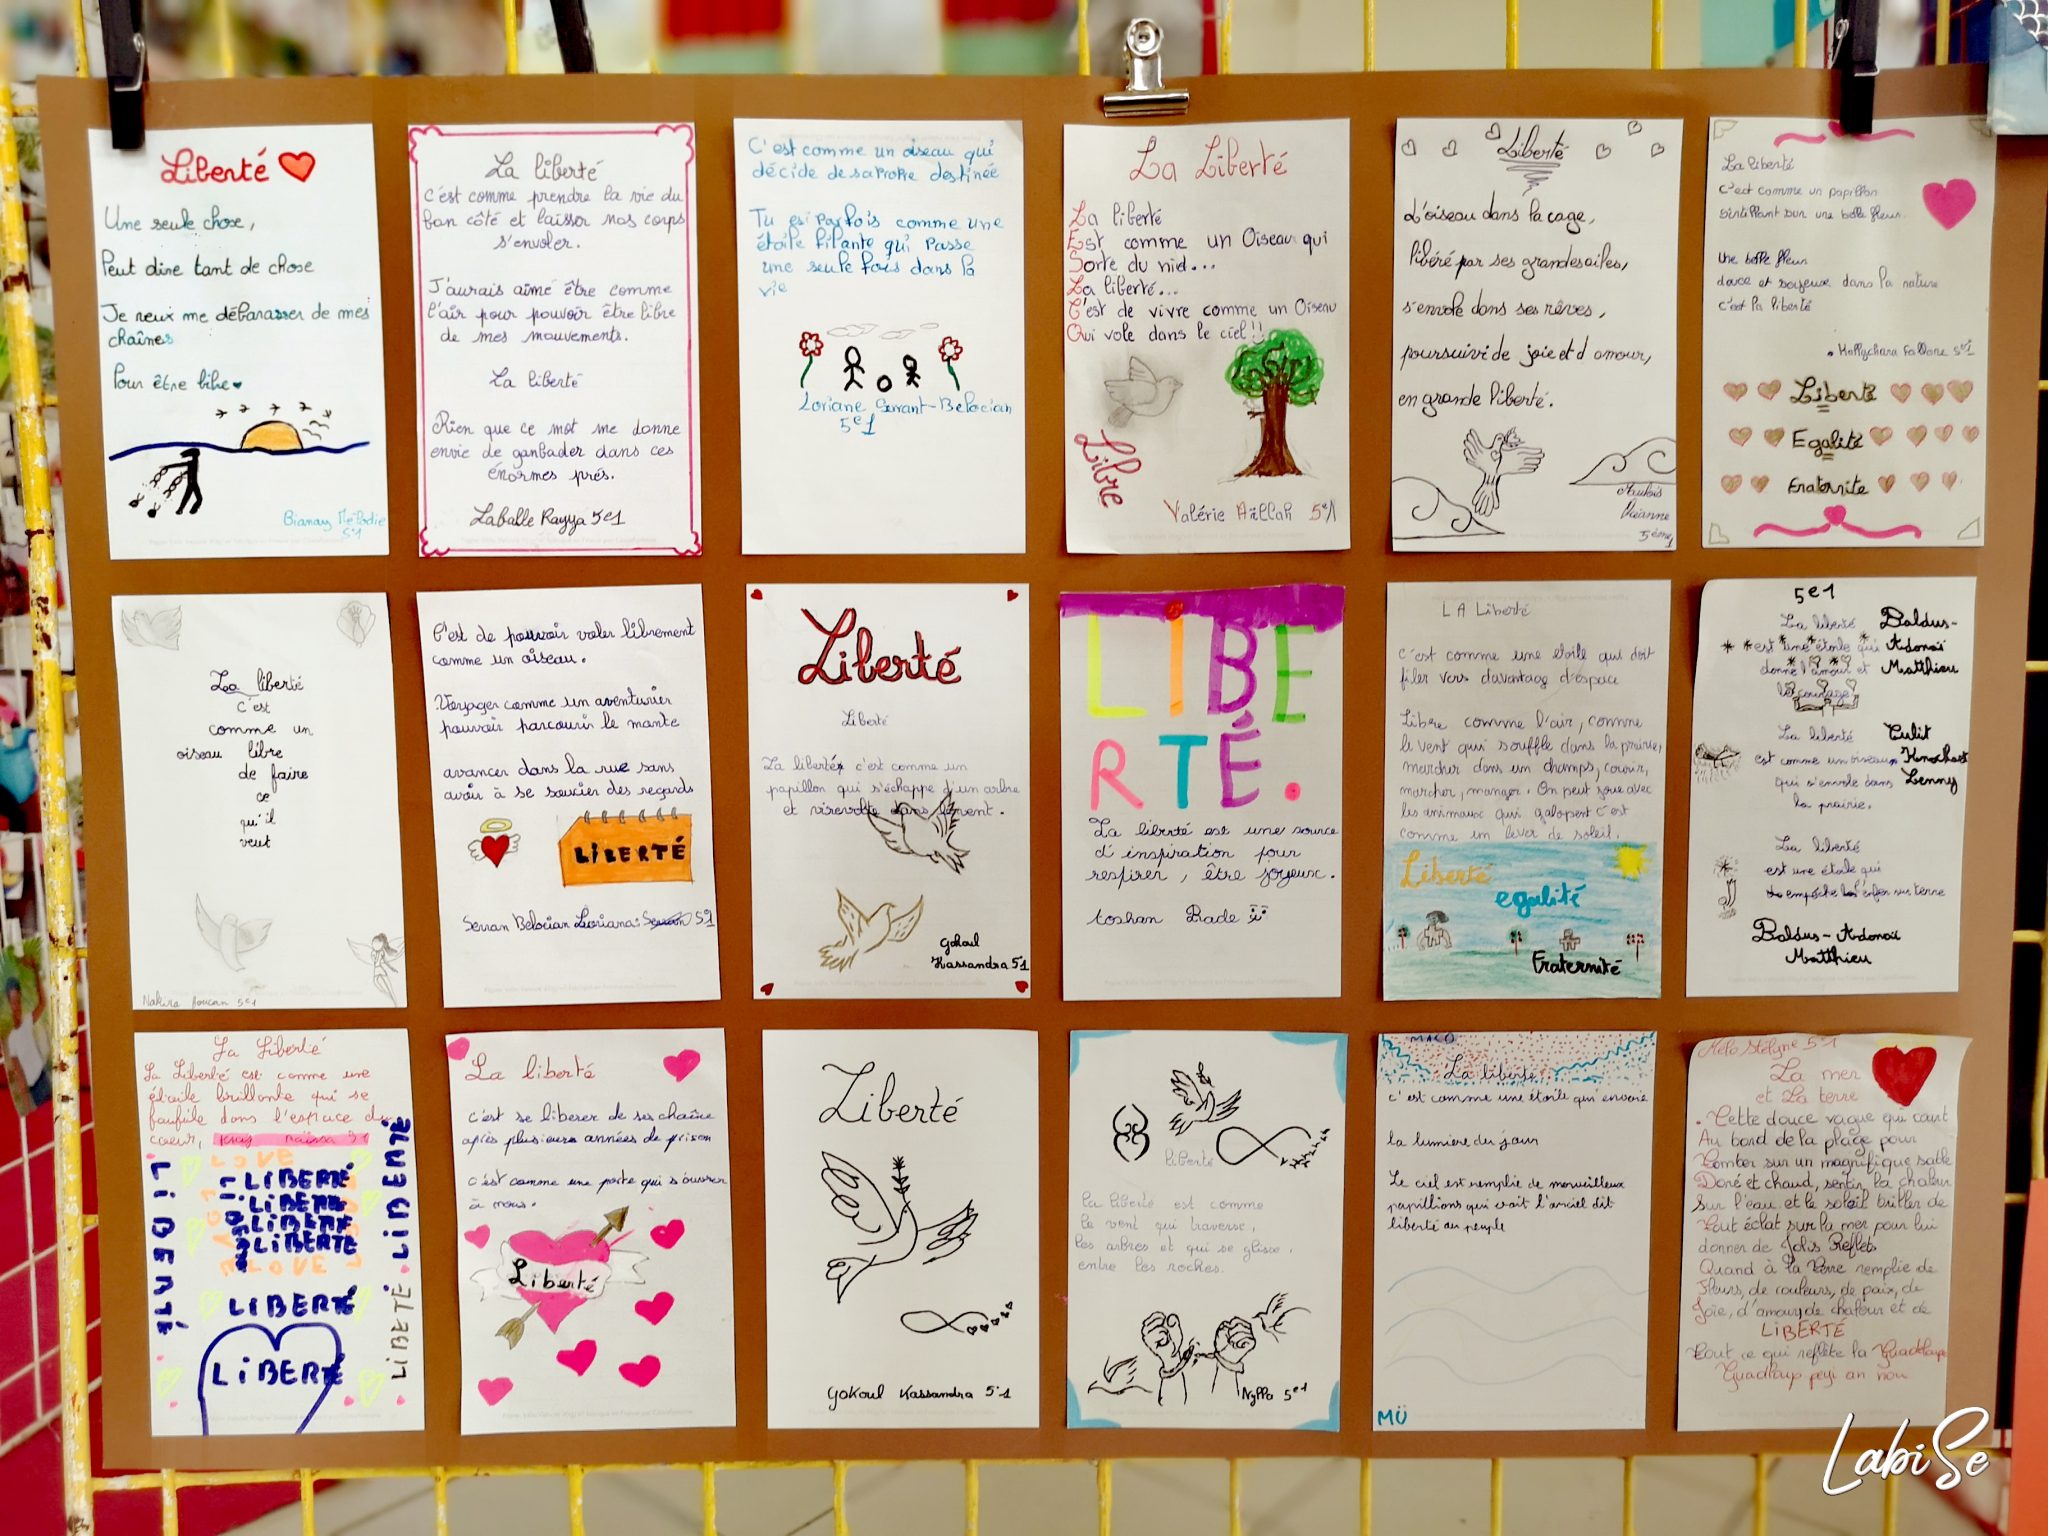 Liberté
Une seule chose,
Peut dire tant de chose
Je veux me débarasser de mes
chaînes
Pour être libre
Bianay Mélodie
5e1
La liberté
c'est comme prendre la vie du
bon côté et laisser nos corps
s'envoler.
J'aurais aimé être comme
l'air pour pouvoir être libre
de mes mouvements.
La liberté
Rien que ce mot me donne
envie de gambader dans ces
énormes prés.
Laballe Rayya 5e1
C'est comme un oiseau qui
décide de sa propre destinée
Tu es parfois comme une
étoile filante qui passe
une seule fois dans la
vie
Loriane Serrant-Belocian
5e1
La Liberté
La liberté
Est comme un Oiseau qui
Sorte du nid...
La liberté...
C'est de vivre comme un Oiseau
Qui vole dans le ciel!!
Libre
Valérie Aïllah 5e1
Liberté
L'oiseau dans la cage,
libéré par ses grandes ailes,
s'envole dans ses rêves,
poursuivi de joie et d amour,
en grande liberté.
Océanne
5ème1
La liberté
c'est comme un papillon
sintillant sur une belle fleur.
Une belle fleur
douce et soyeuse dans la nature
c'est la liberté
5e1
Liberté
Egalité
Fraternite
La liberté
c'est
comme un
oiseau libre
de faire
ce
qu'il
veut
5e1
C'est de pouvoir voler librement
comme un oiseau.
Voyager comme un aventurier
pouvoir parcourir le monte
avancer dans la rue sans
avoir à se soucier des regards
LIBERTÉ
Serran Belocian 5e1
Liberté
Liberté
La liberté, c'est comme un
papillon qui s'échappe d'un arbre
et virevolte dans le vent.
Gokoul
Kassandra 51
LIBE
RTÉ.
La liberté est une source
d'inspiration pour
respirer, être joyeux.
Eoshan Rade
LA Liberté
c'est comme une etoile qui doit
filer vers davantage d'espace
Libre comme l'air, comme
le vent qui souffle dans la prairie,
marcher dans un champs, courir,
marcher, manger. On peut joue avec
les animaux qui galopent c'est
comme un lever de soleil.
Liberté
egalité
Fraternité
5e1
La liberté
est une étoile qui
donne l'amour et
le courage
Baldus-
Adonaï
Matthieu
La liberté
est comme un oiseau
qui s'envole dans
la prairie.
Lenny
La liberté
est une étoile qui
empêche
sur terre
Baldus-Adonaï
Matthieu
La Liberté
La Liberté est comme une
étoile brillante qui se
faufile dans l'espace du
coeur,
LOVE
LIBERTÉ
LIBERTÉ
LIBERTÉ
LIBERTÉ
LOVE
LIBERTÉ
LIBERTÉ
LIBERTÉ
LIBERTÉ
LIBETÉ
La liberté
c'est se liberer de ses chaîne
après plusieurs années de prison
c'est comme une porte qui s'ouvrer
à nous.
Liberté
Liberté
Gokoul Kassandra 51
liberté
la liberté est comme
le vent qui traverse,
les arbres et qui se glisse,
entre les roches.
5e1
MACO
La liberté
c'est comme une étoile qui envoie
la lumière du jour
Le ciel est remplie de merveilleux
papillions qui
liberté au peuple
MÜ
Mélo Stélyne 5e1
La mer
et La terre
Cette douce vague qui court
Au bord de la plage pour
Tomber sur un magnifique sable
Doré et chaud, sentir la chaleur
Sur l'eau et le soleil briller de
Tout éclat sur la mer pour lui
donner de Jolis Reflets
Quand à la Terre remplie de
Fleurs, de couleurs, de paix, de
Joie, d'amour, de chaleur et de
LIBERTÉ
Tout ce qui reflète la Guadeloupe
Guadloup péyi an nou
LabiSe